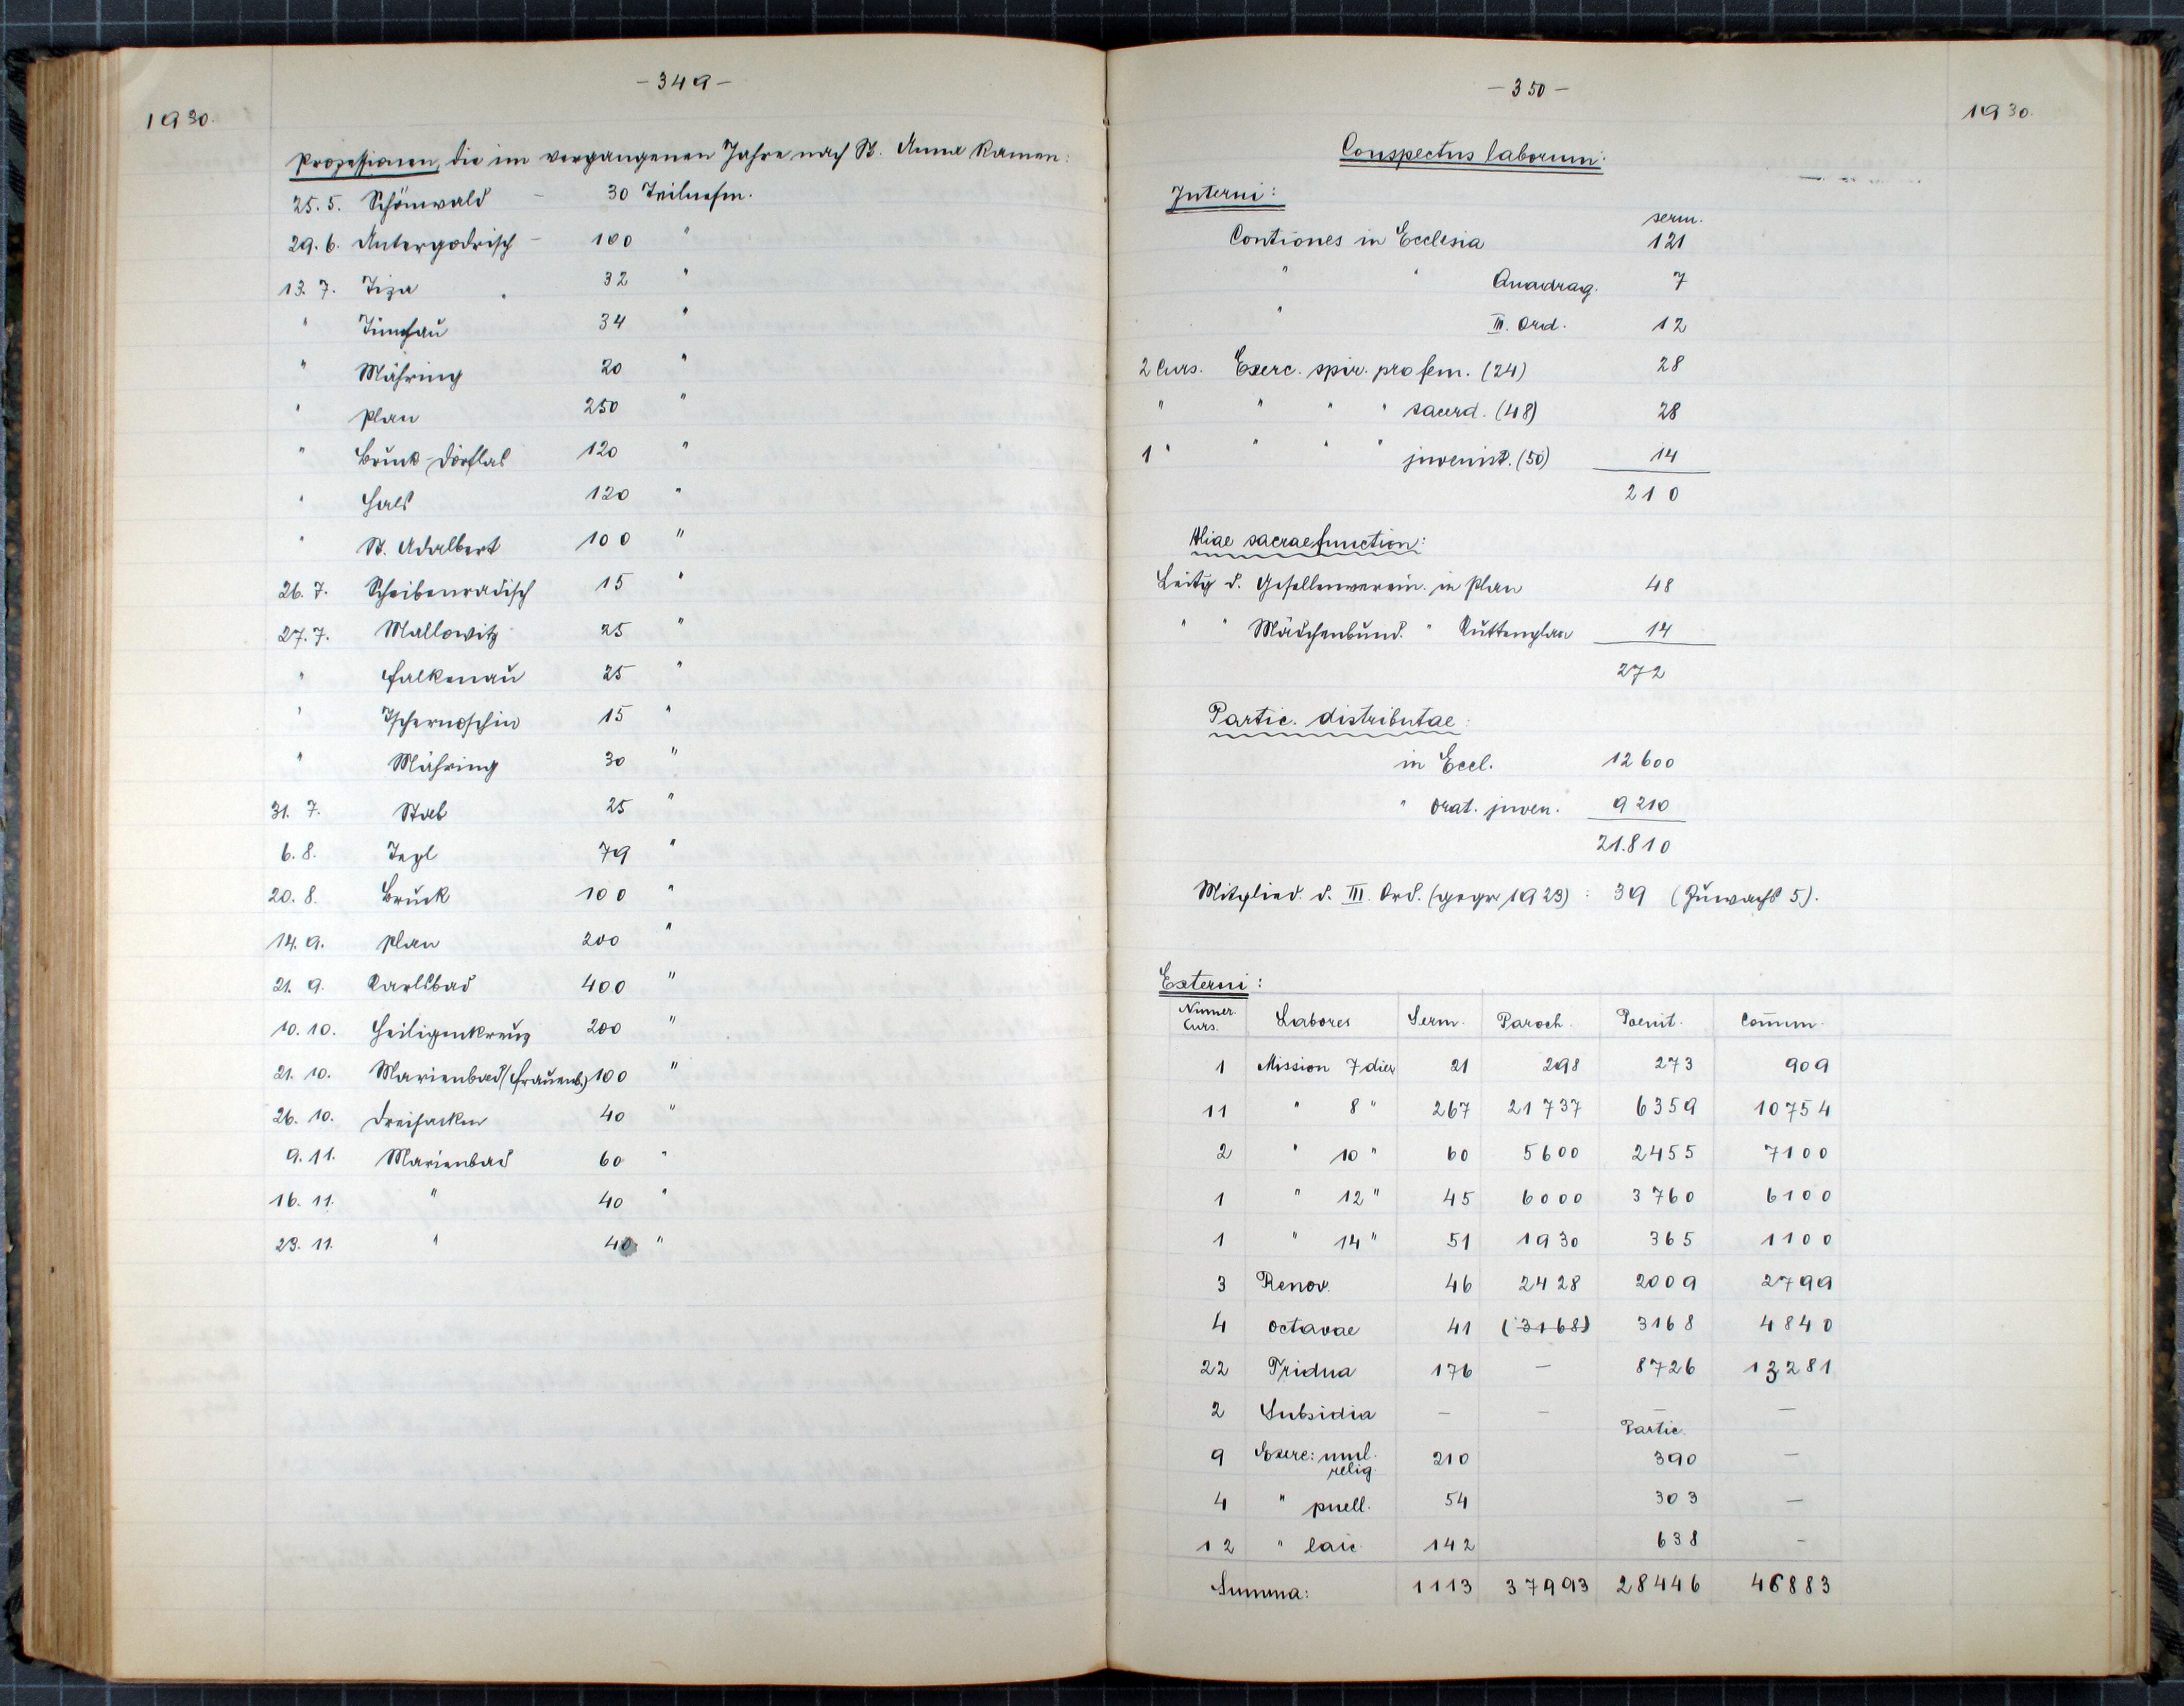 - 349 -
1930.
Prozessionen, die im vergangenen Jahre nach St. Anna kamen:
25. 5. Schönwald - 30 Teilnehm.
29. 6. Untergodrisch - 100 "
13. 7. Tiza 32 "
" 34 "
" Mähring 20 "
" Plan 250 "
" Bruck-Dörflas 120 "
" Hals 120 "
" St. Adalbert 100 "
26. 7. Scheibenradisch 15 "
27. 7. Mallowitz 25 "
" Falkenau 25 "
" Tschernoschin 15 "
" Mähring 30 "
31. 7. Stab 25 "
6. 8. Tepl 79 "
20. 8. Bruck 100 "
14. 9. Plan 200 "
21. 9. Karlsbad 400 "
10. 10. Heiligenkreuz 200 "
21. 10. Marienbad (Frauenb.) 100 "
26. 10. Dreihacken 40 "
9. 11. Marienbad 60 "
16. 11. " 40 "
23. 11. " 40 "
- 350 -
1930.
Conspectus laborum:
Interni:
serm.
Contiones in Ecclesia 121
" " Quadrag. 7
" III. Ord. 12
2 Curs. Exerc. spir. pro fem. (24) 28
" " " " sacerd. (48) 28
1 " " " " juvenist. (50) 14
210
Aliae sacrae function:
Leitg d. Gesellenverein. in Plan 48
" " Mädchenbund. " Kuttenplan 14
272
Partic. distributae:
in Eccl. 12 600
" Orat. juven. 9 210
21.810
Mitglied. d. III. Ord. (gegr 1923) : 39 (Zuwachs 5).
Externi:
Numer. Curs. Labores Serm. Paroch. Poenit. Comm.
1 Mission 7 dier 21 298 273 909
11 " 8 " 267 21 737 6359 10 754
2 " 10 " 60 5600 2455 7100
1 " 12 " 45 6000 3760 6100
1 " 14 " 51 1930 365 1100
3 Renov. 46 2428 2009 2799
4 Octavae 41 (3168) 3168 4840
22 Tridua 176 — 8726 13281
2 Subsidia — — — —
Partic.
9 Exerc: mul. relig. 210 390 —
4 " puell. 54 303 —
12 " laic. 142 638 —
Summa: 1113 37993 28446 46883